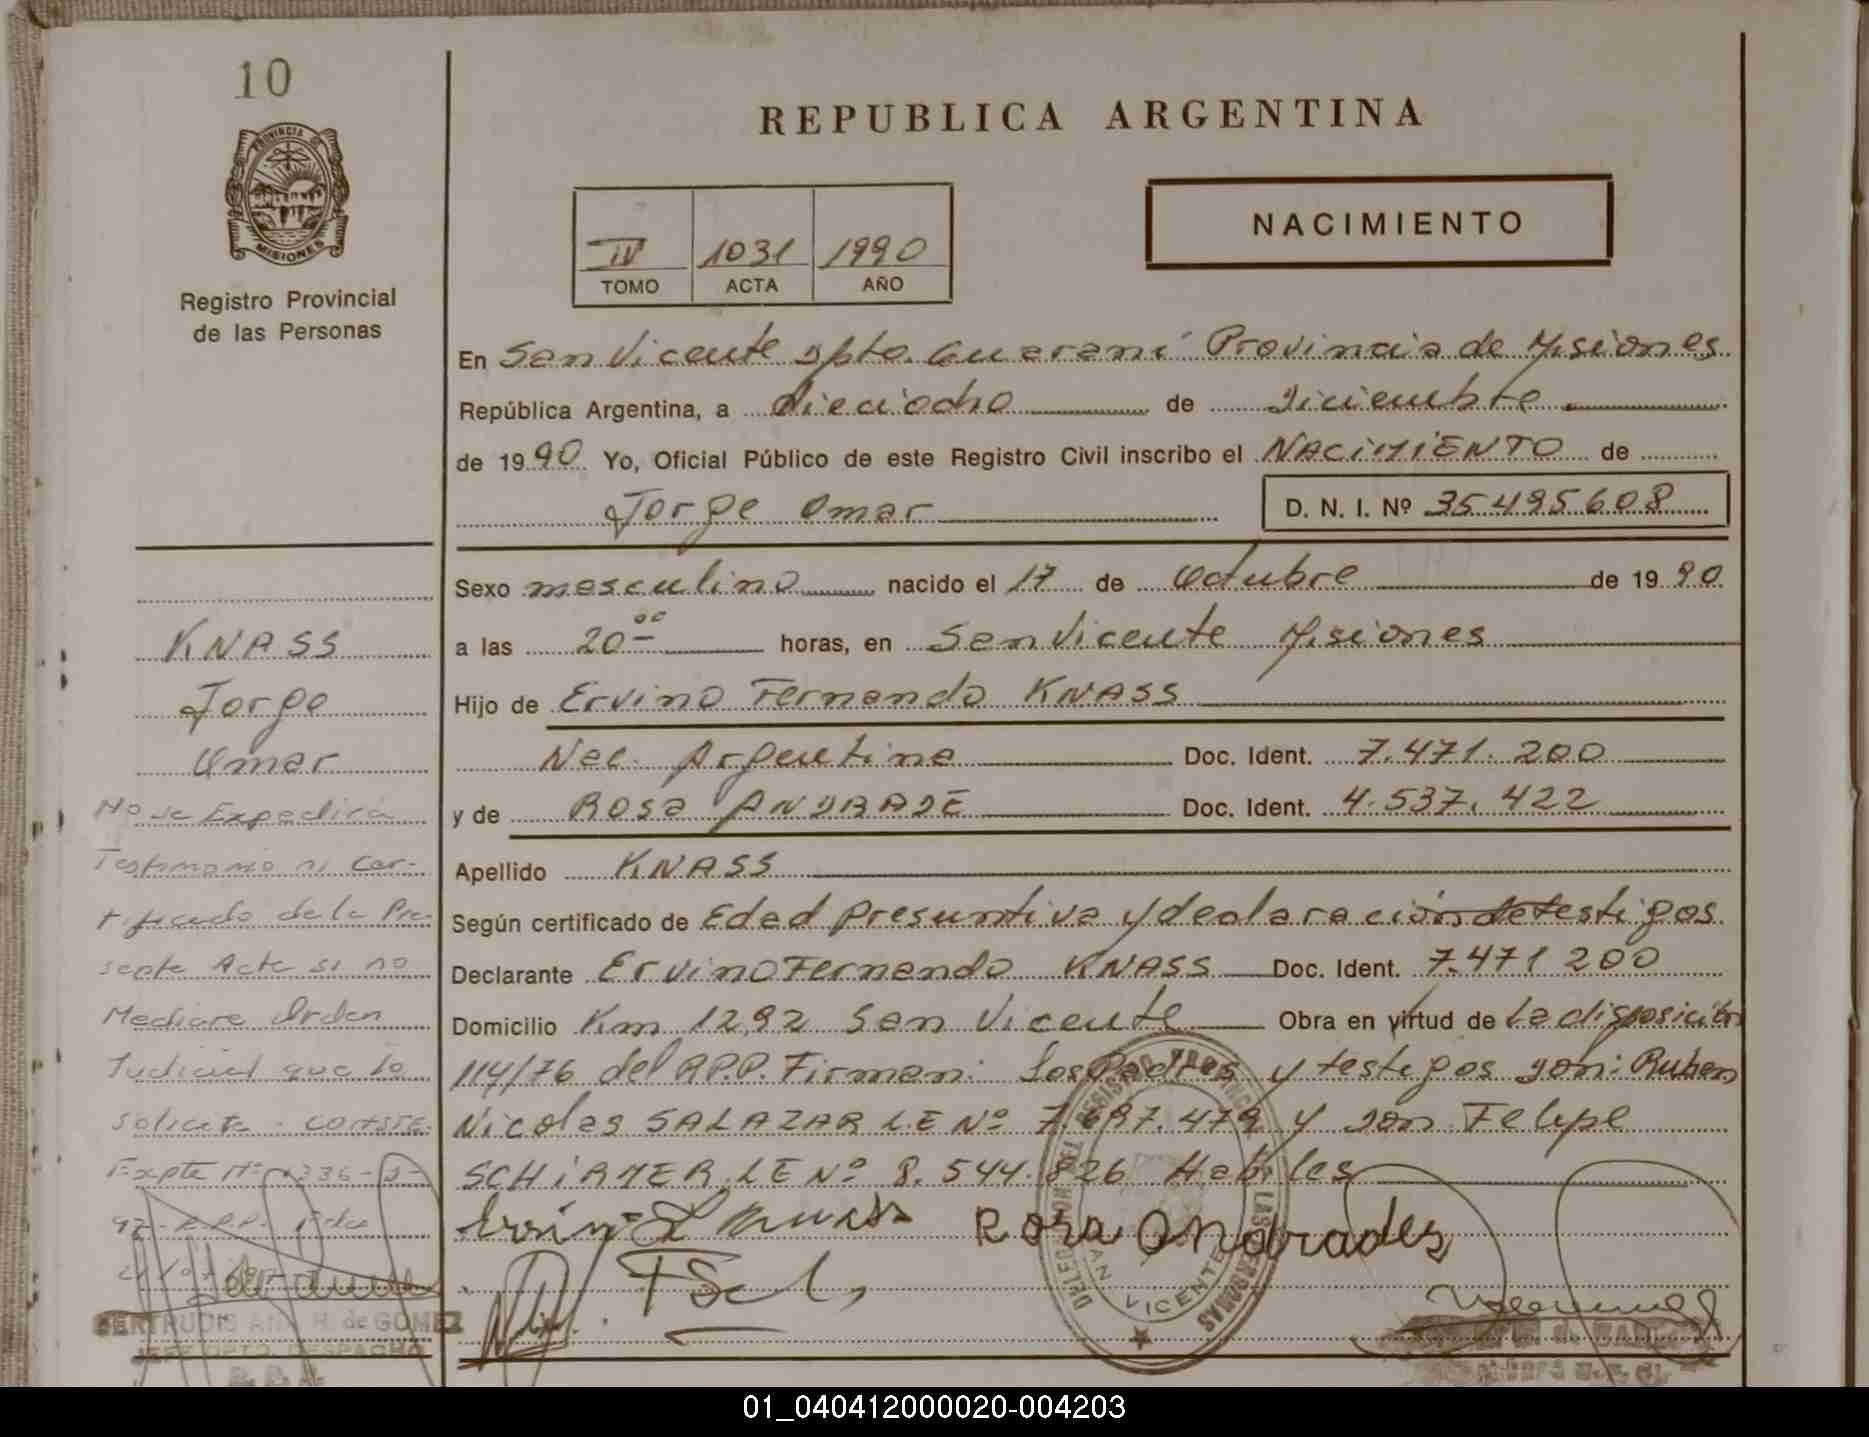 10
PROVINCIA DE
MISIONES
Registro Provincial
de las Personas
REPUBLICA ARGENTINA
IV 1031 1990
TOMO ACTA AÑO
NACIMIENTO
En San Vicente Dpto. Guaraní Provincia de Misiones
República Argentina, a dieciocho de Diciembre
de 1990 Yo, Oficial Público de este Registro Civil inscribo el NACIMIENTO de
Jorge Omar D. N. I. Nº 35495608
Sexo masculino nacido el 17 de Octubre de 1990
a las 20 00 horas, en San Vicente Misiones
Hijo de Ervino Fernando KNASS
Nac. Argentina Doc. Ident. 7.471.200
y de Rosa ANDRADE Doc. Ident. 4.537.422
Apellido KNASS
Según certificado de Edad presuntiva y declaración de testigos
Declarante Ervino Fernando KNASS Doc. Ident. 7.471 200
Domicilio Km 1292 San Vicente Obra en virtud de La disposición
114/76 del R.P.P. Firman: Los Padres y testigos Don: Ruben
Nicolas SALAZAR L.E Nº 7.697.479 y Don Felipe
SCHIRMER LE Nº 8.544.826 Habiles
Rosa Andrades
KNASS
Jorge
Omar
No se Expedirá
Testimonio ni Cer-
tificado de la Pre-
sente Acta si no
Mediare Orden
Judicial que lo
solicite. CONSTE.
Expte Nº
92 - R.P.P.
GERTRUDIS ANA R. de GOMEZ
JEFE DPTO. DESPACHO
R. P. P.
REGISTRO PROVINCIAL DE LAS PERSONAS
SAN VICENTE
01_040412000020-004203